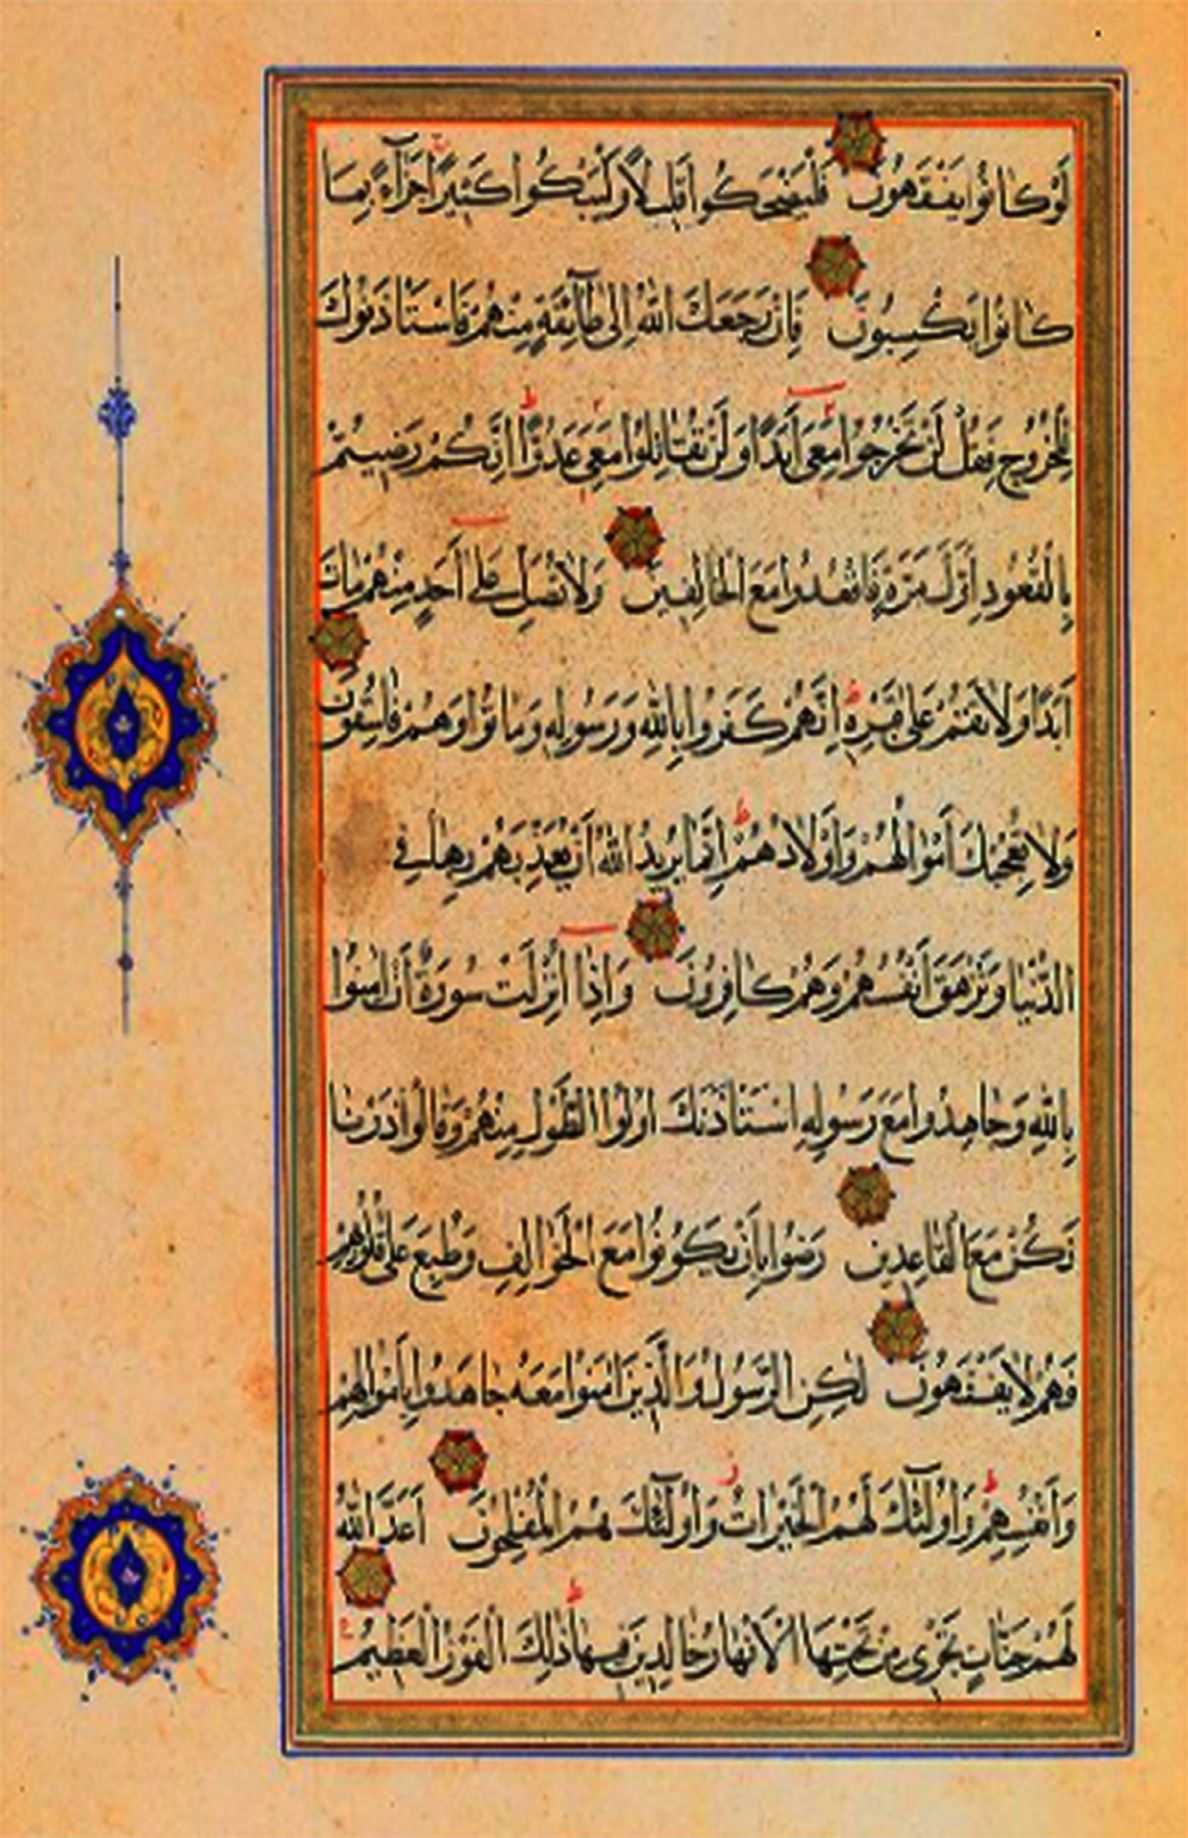 لَوْ كَانُوا يَفْقَهُونَ فَلْيَضْحَكُوا قَلِيلًا وَلْيَبْكُوا كَثِيرًا جَزَاءً بِمَا
كَانُوا يَكْسِبُونَ فَإِنْ رَجَعَكَ اللَّهُ إِلَىٰ طَائِفَةٍ مِنْهُمْ فَاسْتَأْذَنُوكَ
لِلْخُرُوجِ فَقُلْ لَنْ تَخْرُجُوا مَعِيَ أَبَدًا وَلَنْ تُقَاتِلُوا مَعِيَ عَدُوًّا إِنَّكُمْ رَضِيتُمْ
بِالْقُعُودِ أَوَّلَ مَرَّةٍ فَاقْعُدُوا مَعَ الْخَالِفِينَ وَلَا تُصَلِّ عَلَىٰ أَحَدٍ مِنْهُمْ مَاتَ
أَبَدًا وَلَا تَقُمْ عَلَىٰ قَبْرِهِ إِنَّهُمْ كَفَرُوا بِاللَّهِ وَرَسُولِهِ وَمَاتُوا وَهُمْ فَاسِقُونَ
وَلَا تُعْجِبْكَ أَمْوَالُهُمْ وَأَوْلَادُهُمْ إِنَّمَا يُرِيدُ اللَّهُ أَنْ يُعَذِّبَهُمْ بِهَا فِي
الدُّنْيَا وَتَزْهَقَ أَنْفُسُهُمْ وَهُمْ كَافِرُونَ وَإِذَا أُنْزِلَتْ سُورَةٌ أَنْ آمِنُوا
بِاللَّهِ وَجَاهِدُوا مَعَ رَسُولِهِ اسْتَأْذَنَكَ أُولُوا الطَّوْلِ مِنْهُمْ وَقَالُوا ذَرْنَا
نَكُنْ مَعَ الْقَاعِدِينَ رَضُوا بِأَنْ يَكُونُوا مَعَ الْخَوَالِفِ وَطُبِعَ عَلَىٰ قُلُوبِهِمْ
فَهُمْ لَا يَفْقَهُونَ لَٰكِنِ الرَّسُولُ وَالَّذِينَ آمَنُوا مَعَهُ جَاهَدُوا بِأَمْوَالِهِمْ
وَأَنْفُسِهِمْ وَأُولَٰئِكَ لَهُمُ الْخَيْرَاتُ وَأُولَٰئِكَ هُمُ الْمُفْلِحُونَ أَعَدَّ اللَّهُ
لَهُمْ جَنَّاتٍ تَجْرِي مِنْ تَحْتِهَا الْأَنْهَارُ خَالِدِينَ فِيهَا ذَٰلِكَ الْفَوْزُ الْعَظِيمُ